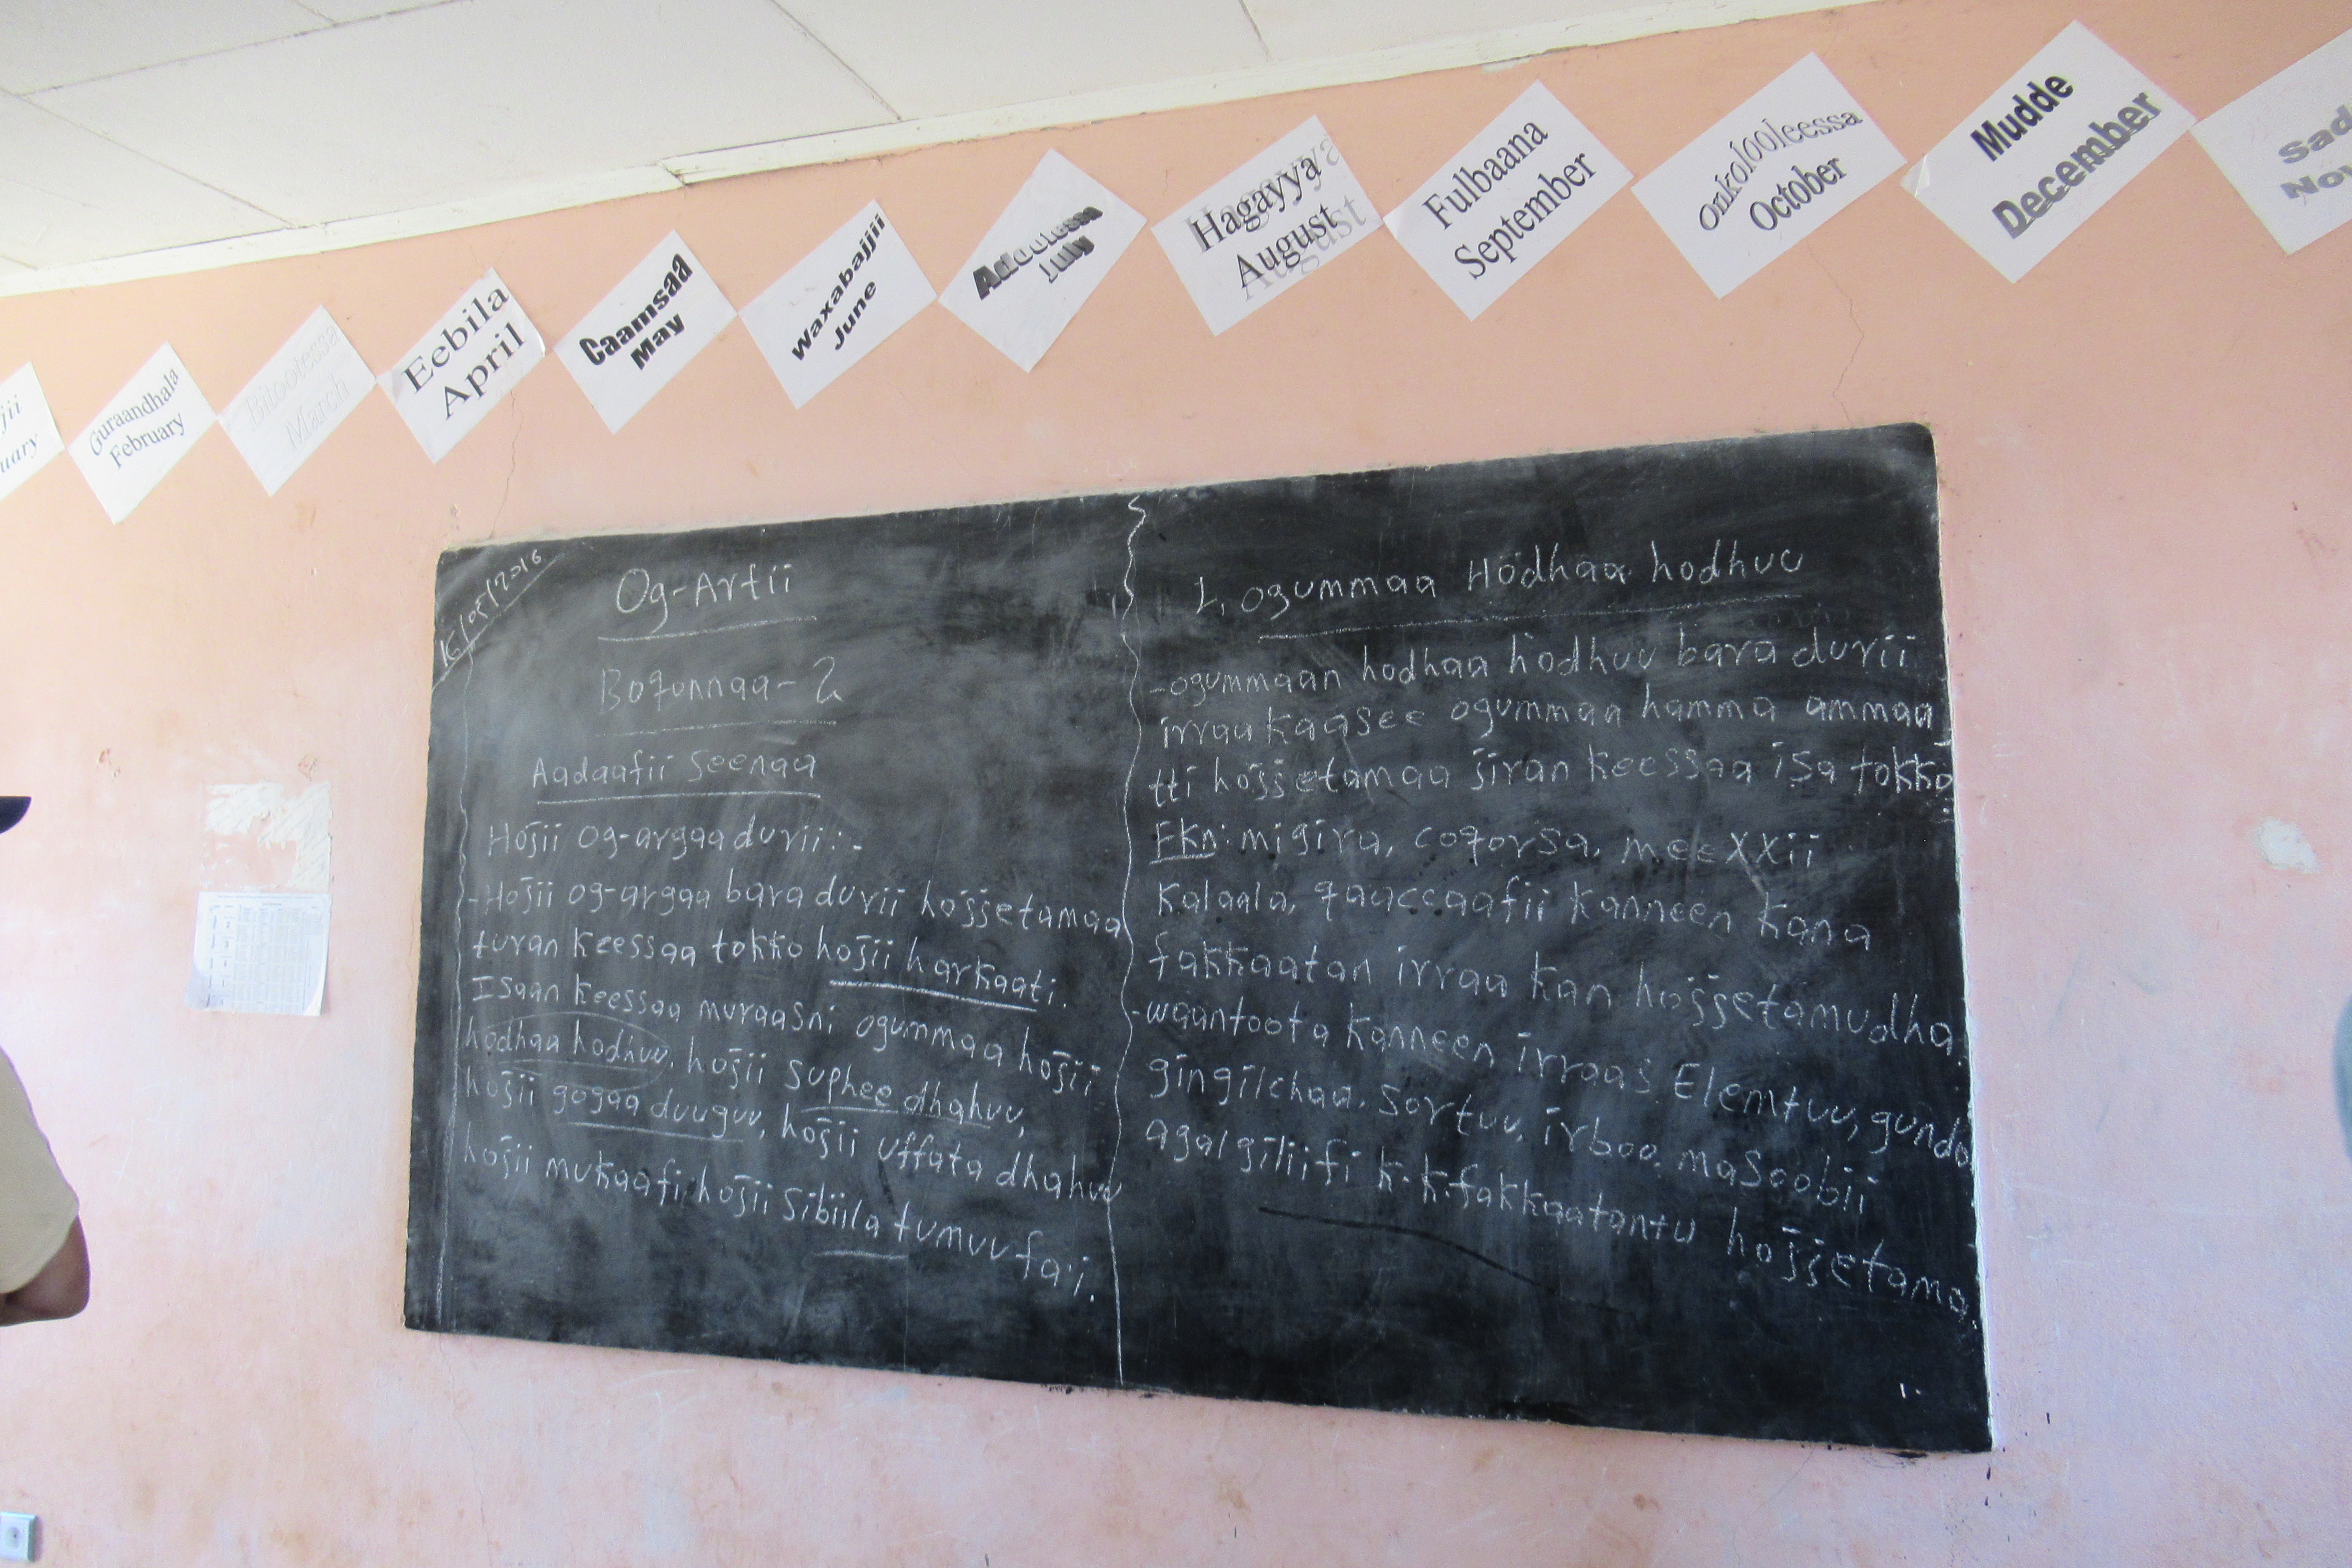 jii
uary
Guraandhala
February
Bitootessa
March
Eebila
April
Caamsaa
May
Waxabajjii
June
Adootessa
July
Hagayya
August
Fulbaana
September
Onkolooleessa
October
Mudde
December
Sad
Nov
/05/2016
Og-Artii
Boqonnaa-2
Aadaafii Seenaa
Hojii og-argaa durii:-
-Hojii og-argaa bara durii hojjetamaa
turan keessaa tokko hojii harkaati.
Isaan keessaa muraasni ogummaa hojii
hodhaa hodhuu, hojii suphee dhahuu,
hojii gogaa duuguu, hojii uffata dhahuu
hojii mukaafi hojii sibiila tumuu fa'i.
1, ogummaa Hodhaa hodhuu
-ogummaan hodhaa hodhuu bara durii
irraa kaasee ogummaa hamma ammaa
tti hojjetamaa jiran keessaa isa tokko
Fkn: migira, coqorsa, meexxii
Kalaala, qaaccaafii kanneen kana
fakkaatan irraa kan hojjetamudha.
-waantoota kanneen irraas Elemtuu, gundo
gingilchaa, Sortuu, irboo, masoobii
agalgiliifi k.k.fakkaatantu hojjetama